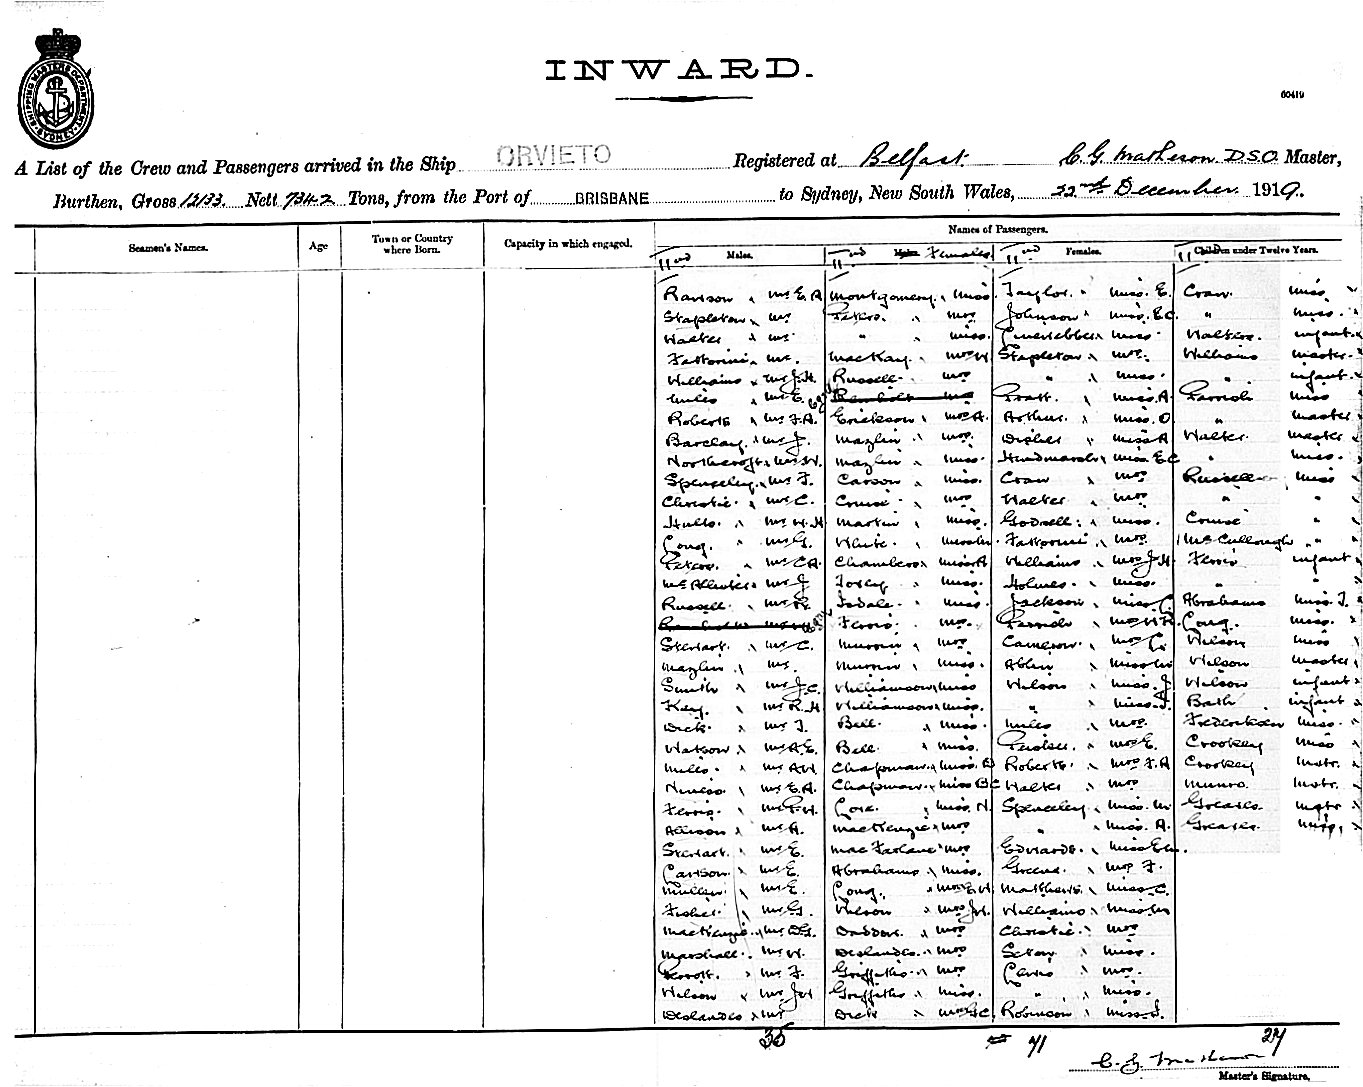 INWARD.
60419
SHIPPING MASTERS DEPARTMENT SYDNEY
A List of the Crew and Passengers arrived in the Ship ORVIETO Registered at Belfast C. G. Matheson D.S.O. Master,
Burthen, Gross 12133. Nett 7342 Tons, from the Port of BRISBANE to Sydney, New South Wales, 22nd December 1919.
Seamen's Names. Age Town or Country where Born. Capacity in which engaged. Names of Passengers.
Males. Males Females. Females. Children under Twelve Years.
Rawson " Mr E. A Montgomery " Miss. Taylor " Miss. E. Coan. Miss
Stapleton " Mr Peters " Mrs Johnson " Miss. E.C. " Miss.
Walter " Mr " Miss. Miss Walters. infant
Fattorini " Mr. MacKay. " Mrs Stapleton " Mrs. Williams Master
Williams " Mr J.H. Russell " Mrs " " Miss. " infant
Miles " Mr E. Pratt. " Miss. A. Parrish Miss
Roberts " Mr F.A. Erickson " Mrs A. Arthur. " Miss. O. " Master
Barclay " Mr J. Mazlin " Mrs. Disher " Miss A Walter. Master
Northcroft " Mr W. Mazlin " Miss. Hindmarsh " Miss E C " Miss.
Spenceley " Mr F. Carson " Miss. Coan " Mrs Russell Miss
Christie " Mr C. Couise " Mrs Walter " Mrs " "
Hulls. " Mr W. H Martin " Miss. Godsell " Miss. Couise "
Cong. " Mr G. White " Fattorini " Mrs. McCullough " "
Peters. " Mr C A. Chambers " Miss A Williams " Mrs J.H. Ferris infant
Mr J Foxley " Miss. Holmes " Miss. " "
Russell " Mr R. Isdale " Miss. Jackson " Miss. C. Abrahams Miss. J.
Ferris " Mrs. Parrish " Mrs W R. Cong. " Miss.
Stewart " Mr C. Murrin " Mrs Cameron " Mrs C. Wilson Miss
Mazlin " Mr. Murrin " Miss. Wilson Master
Smith " Mr J.C. Williamson " Miss Wilson " Miss. J Wilson infant
Key. " Mr R. H. Williamson " Miss. " " Miss. J. Bath infant
Dick. " Mr J. Bell " Miss. Miles " Mrs. Frederiksen Miss.
Watson " Mr A.E. Bell " Miss. " Mrs E. Crookey Miss
Mills. " Mr A.W. Chapman " Miss. D Roberts " Mrs F. A Crookey Mstr.
Niness " Mr E.A. Chapman " Miss B C Walter " Mrs Munro. Mstr.
Ferris " Mr F. W. Cox. " Miss. N. Spenceley " Miss. M. Greaves. Mstr
Allison " Mr A. MacKenzie " Mrs " " Miss. A. Greaves Miss,
Stewart " Mr E. MacFarlane " Mrs Edwards. " Miss
Carlson " Mr E. Abrahams " Miss. Greene. " Mrs F.
Mullen " Mr E. Cong. " Mrs E. W. Matthews " Miss C.
Fisher " Mr G. Wilson " Mrs J.H. Williams " Miss M
MacKenzie " Mr D.G. Daddow. " Mrs Christie " Mrs
Marshall " Mr W. Deslandes " Mrs Seton " Miss.
" Mr F. Griffiths " Mrs " Mrs.
Wilson " Mr J.H Griffiths " Miss. " " Miss.
Deslandes " Mr Dick " Mrs J.C. Robinson " Miss. J.
35 71 27
C. G. Matheson
Master's Signature.